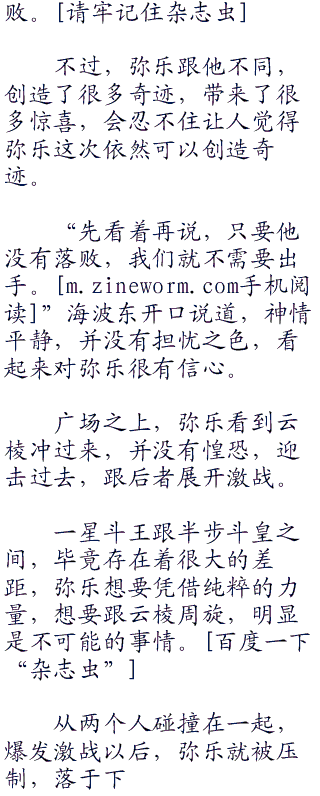 败。[请牢记住杂志虫]
不过，弥乐跟他不同，
创造了很多奇迹，带来了很
多惊喜，会忍不住让人觉得
弥乐这次依然可以创造奇
迹。
“先看着再说，只要他
没有落败，我们就不需要出
手。[m.zineworm.com手机阅
读]”海波东开口说道，神情
平静，并没有担忧之色，看
起来对弥乐很有信心。
广场之上，弥乐看到云
棱冲过来，并没有惶恐，迎
击过去，跟后者展开激战。
一星斗王跟半步斗皇之
间，毕竟存在着很大的差
距，弥乐想要凭借纯粹的力
量，想要跟云棱周旋，明显
是不可能的事情。[百度一下
“杂志虫”]
从两个人碰撞在一起，
爆发激战以后，弥乐就被压
制，落于下